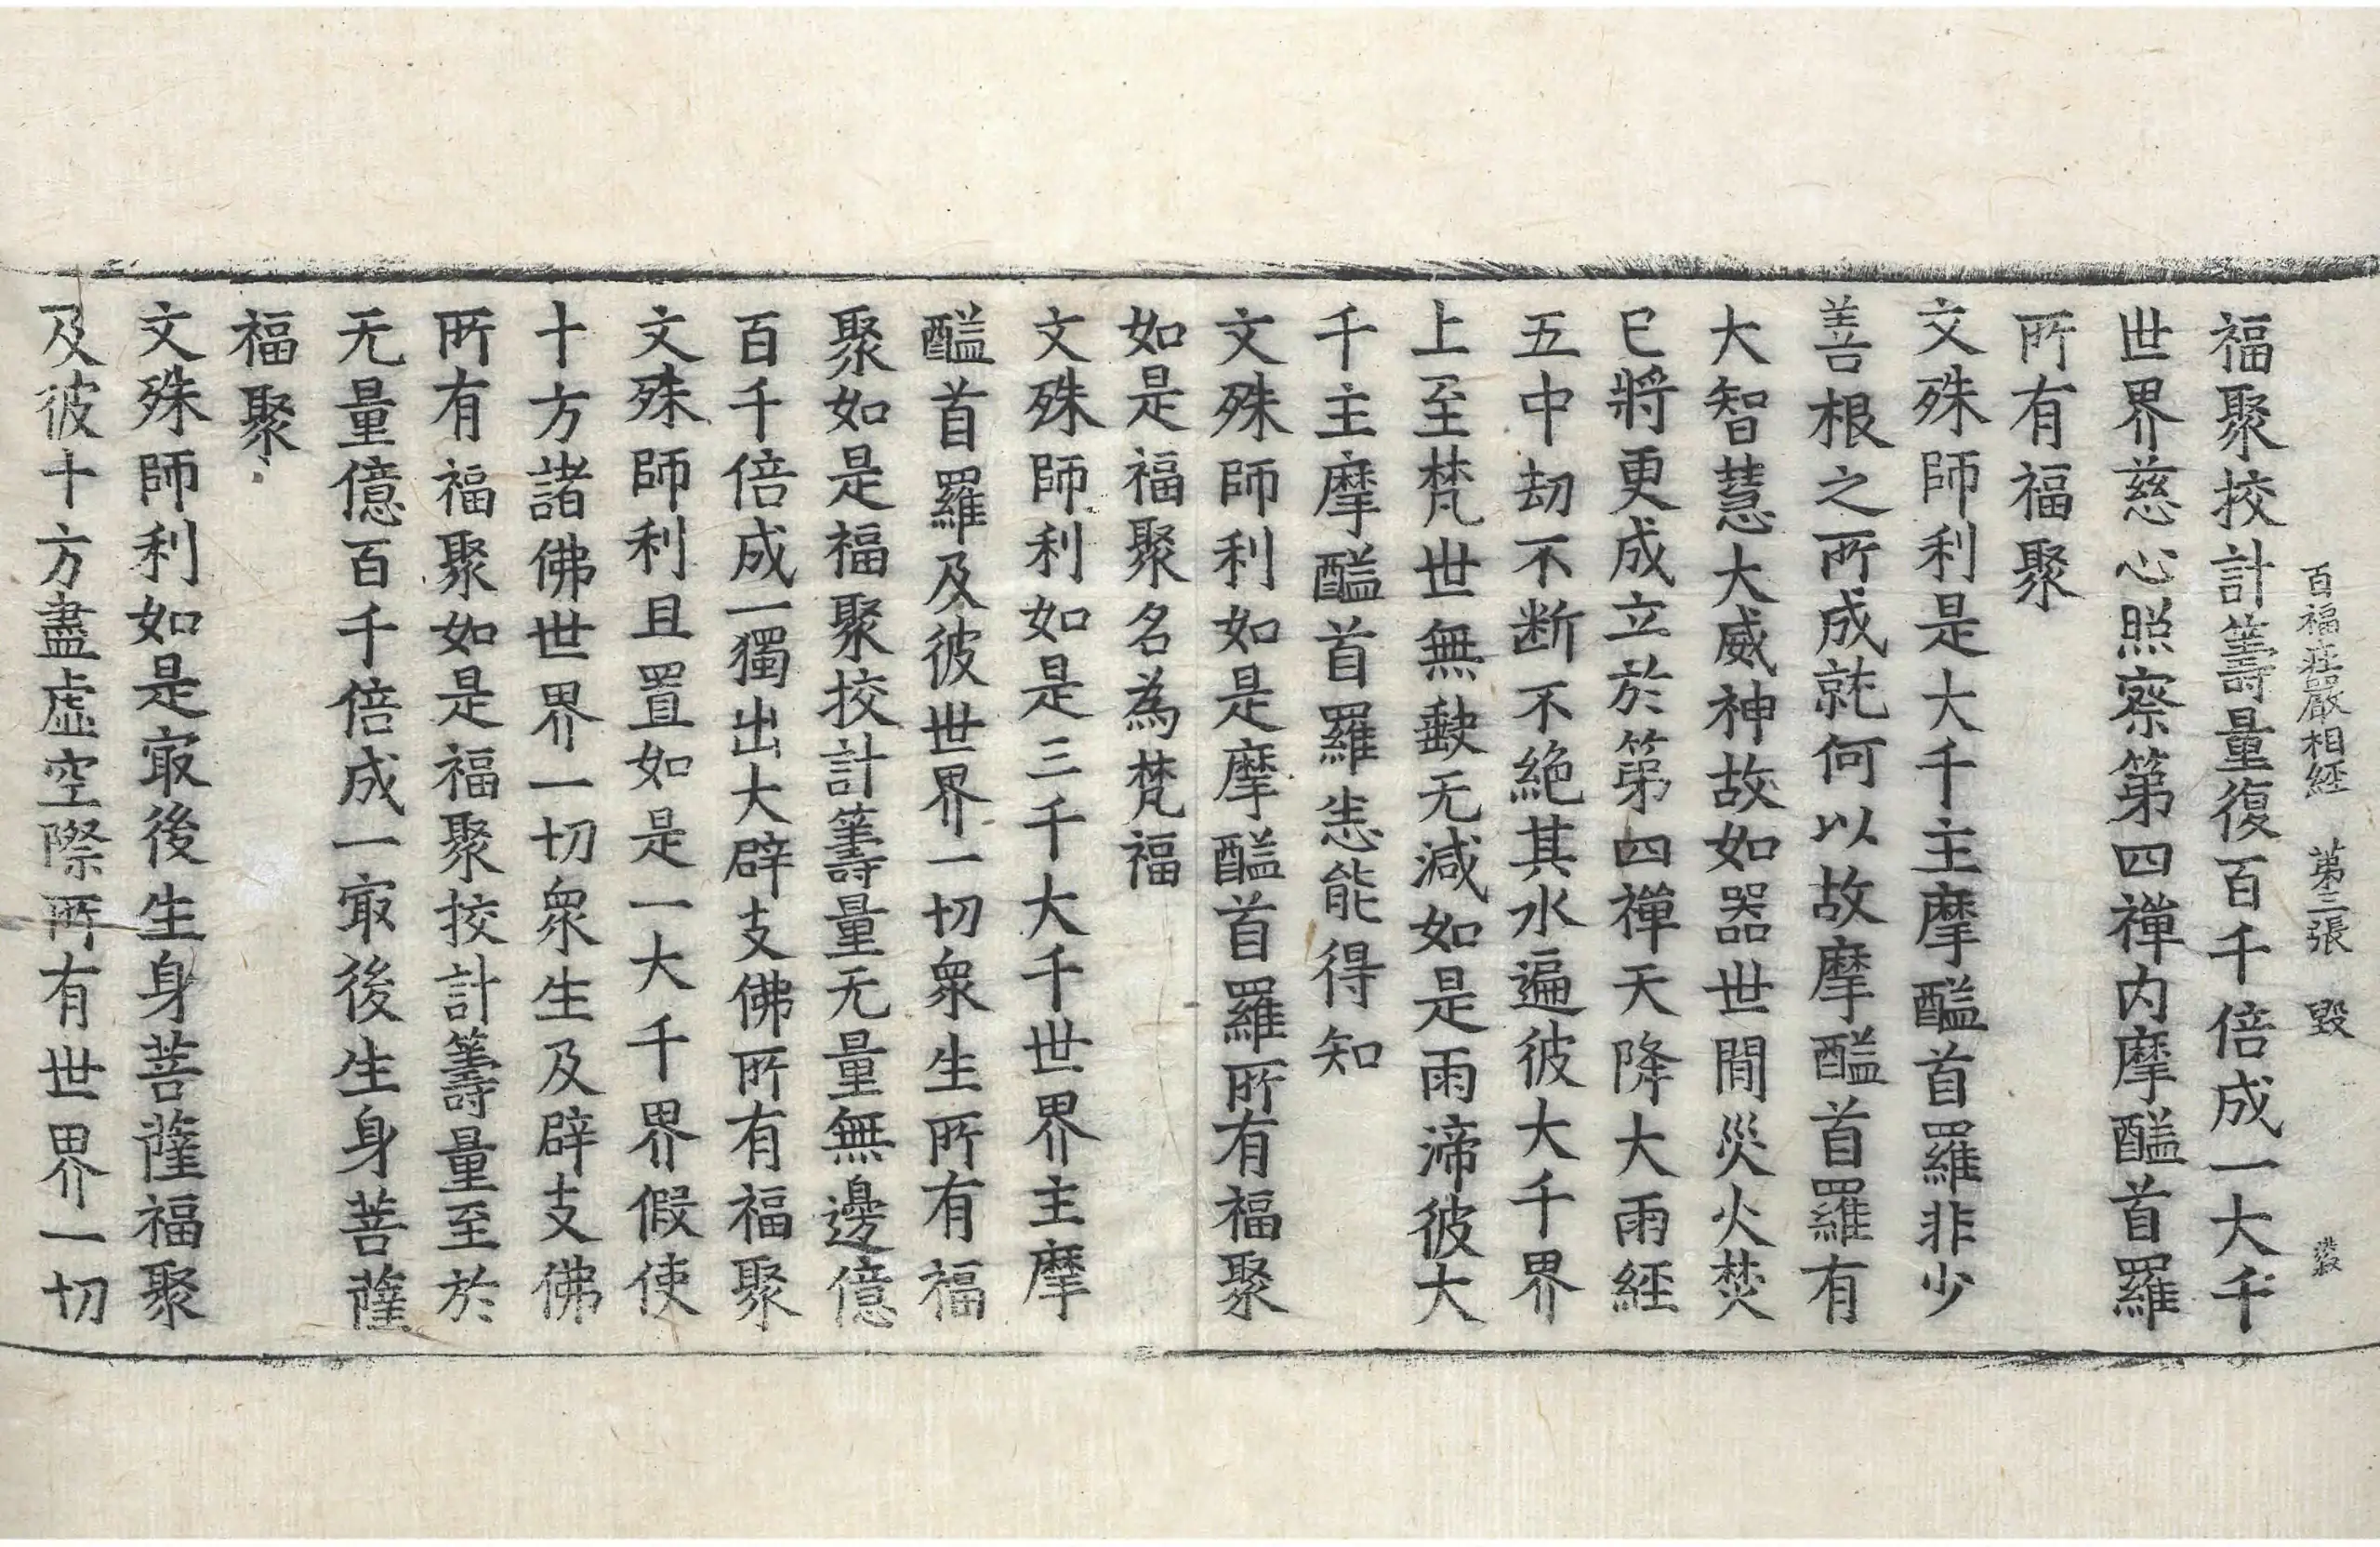 百福莊嚴相經 第三張 毀
福聚挍計籌量復百千倍成一大千
世界慈心照察第四禪内摩醯首羅
所有福聚
文殊師利是大千主摩醯首羅非少
善根之所成就何以故摩醯首羅有
大智慧大威神故如器世間災火焚
已將更成立於第四禪天降大雨經
五中劫不断不絶其水遍彼大千界
上至梵世無缺无減如是雨渧彼大
千主摩醯首羅悉能得知
文殊師利如是摩醯首羅所有福聚
如是福聚名為梵福
文殊師利如是三千大千世界主摩
醯首羅及彼世界一切衆生所有福
聚如是福聚挍計籌量无量無邊億
百千倍成一獨出大辟支佛所有福聚
文殊師利且置如是一大千界假使
十方諸佛世界一切衆生及辟支佛
所有福聚如是福聚挍計籌量至於
无量億百千倍成一㝡後生身菩薩
福聚
文殊師利如是㝡後生身菩薩福聚
及彼十方盡虛空際所有世界一切